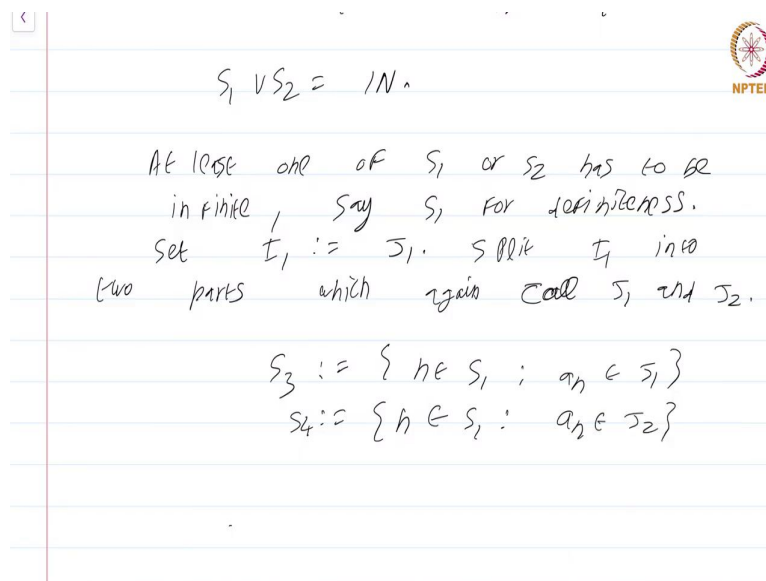 S₁ ∪ S₂ = ℕ.
NPTEL
At least one of S₁ or S₂ has to be
infinite, say S₁ for definiteness.
Set I₁ := J₁. Split I₁ into
two parts which again call J₁ and J₂.
S₃ := { n ∈ S₁ : aₙ ∈ J₁}
S₄ := {n ∈ S₁ : aₙ ∈ J₂}